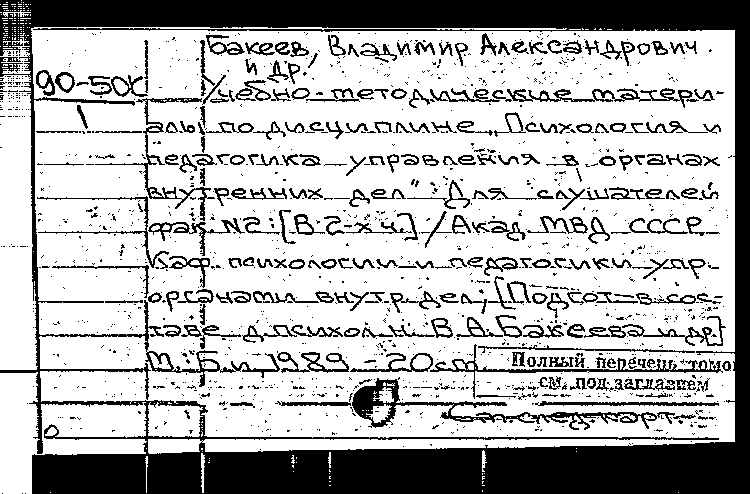 Бакеев, Владимир Александрович
и др.
90-50
1
Учебно-методические матери-
алы по дисциплине „Психология и
педагогика управления в органах
внутренних дел" Для слушателей
фак. №2: [В 2-х ч.] / Акад. МВД СССР.
Каф. психологии и педагогики упр.
органами внутр. дел; [Подгот. в сос-
таве д. психол. н. В. А. Бакеева и др.]
М.: Б. и., 1989. - 20 cm.
Полный перечень томо
см. под заглавием
См. след. карт.